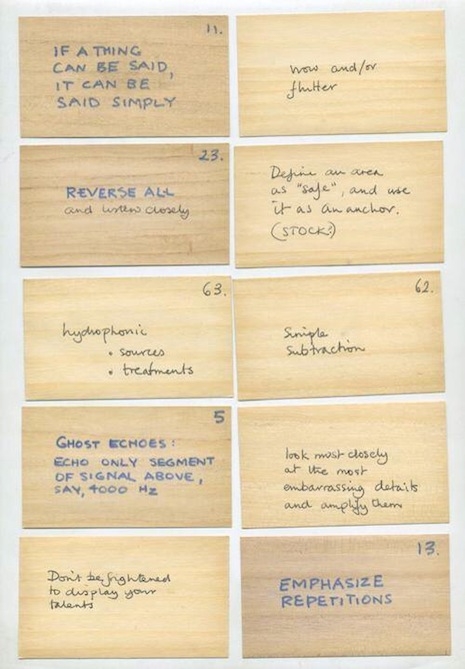 11.
IF A THING
CAN BE SAID,
IT CAN BE
SAID SIMPLY
wow and/or
flutter
23.
REVERSE ALL
and listen closely
Define an area
as "safe", and use
it as an anchor.
(STOCK?)
63.
hydrophonic
• sources
• treatments
62.
Simple
Subtraction
5
GHOST ECHOES:
ECHO ONLY SEGMENT
OF SIGNAL ABOVE,
SAY, 4000 Hz
look most closely
at the most
embarrassing details
and amplify them
Don't be frightened
to display your
talents
13.
EMPHASIZE
REPETITIONS